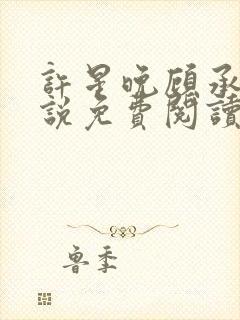 許星晚顧承
說免費閱讀
魯季